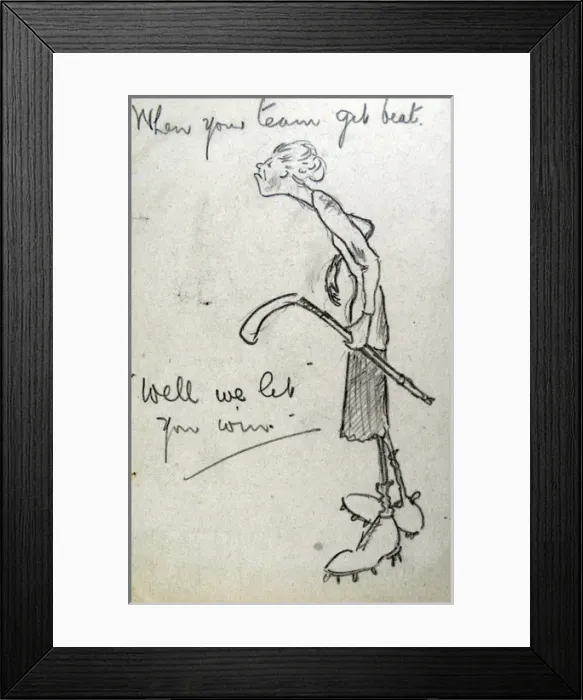 When your team gets beat.
"Well we let
you win."